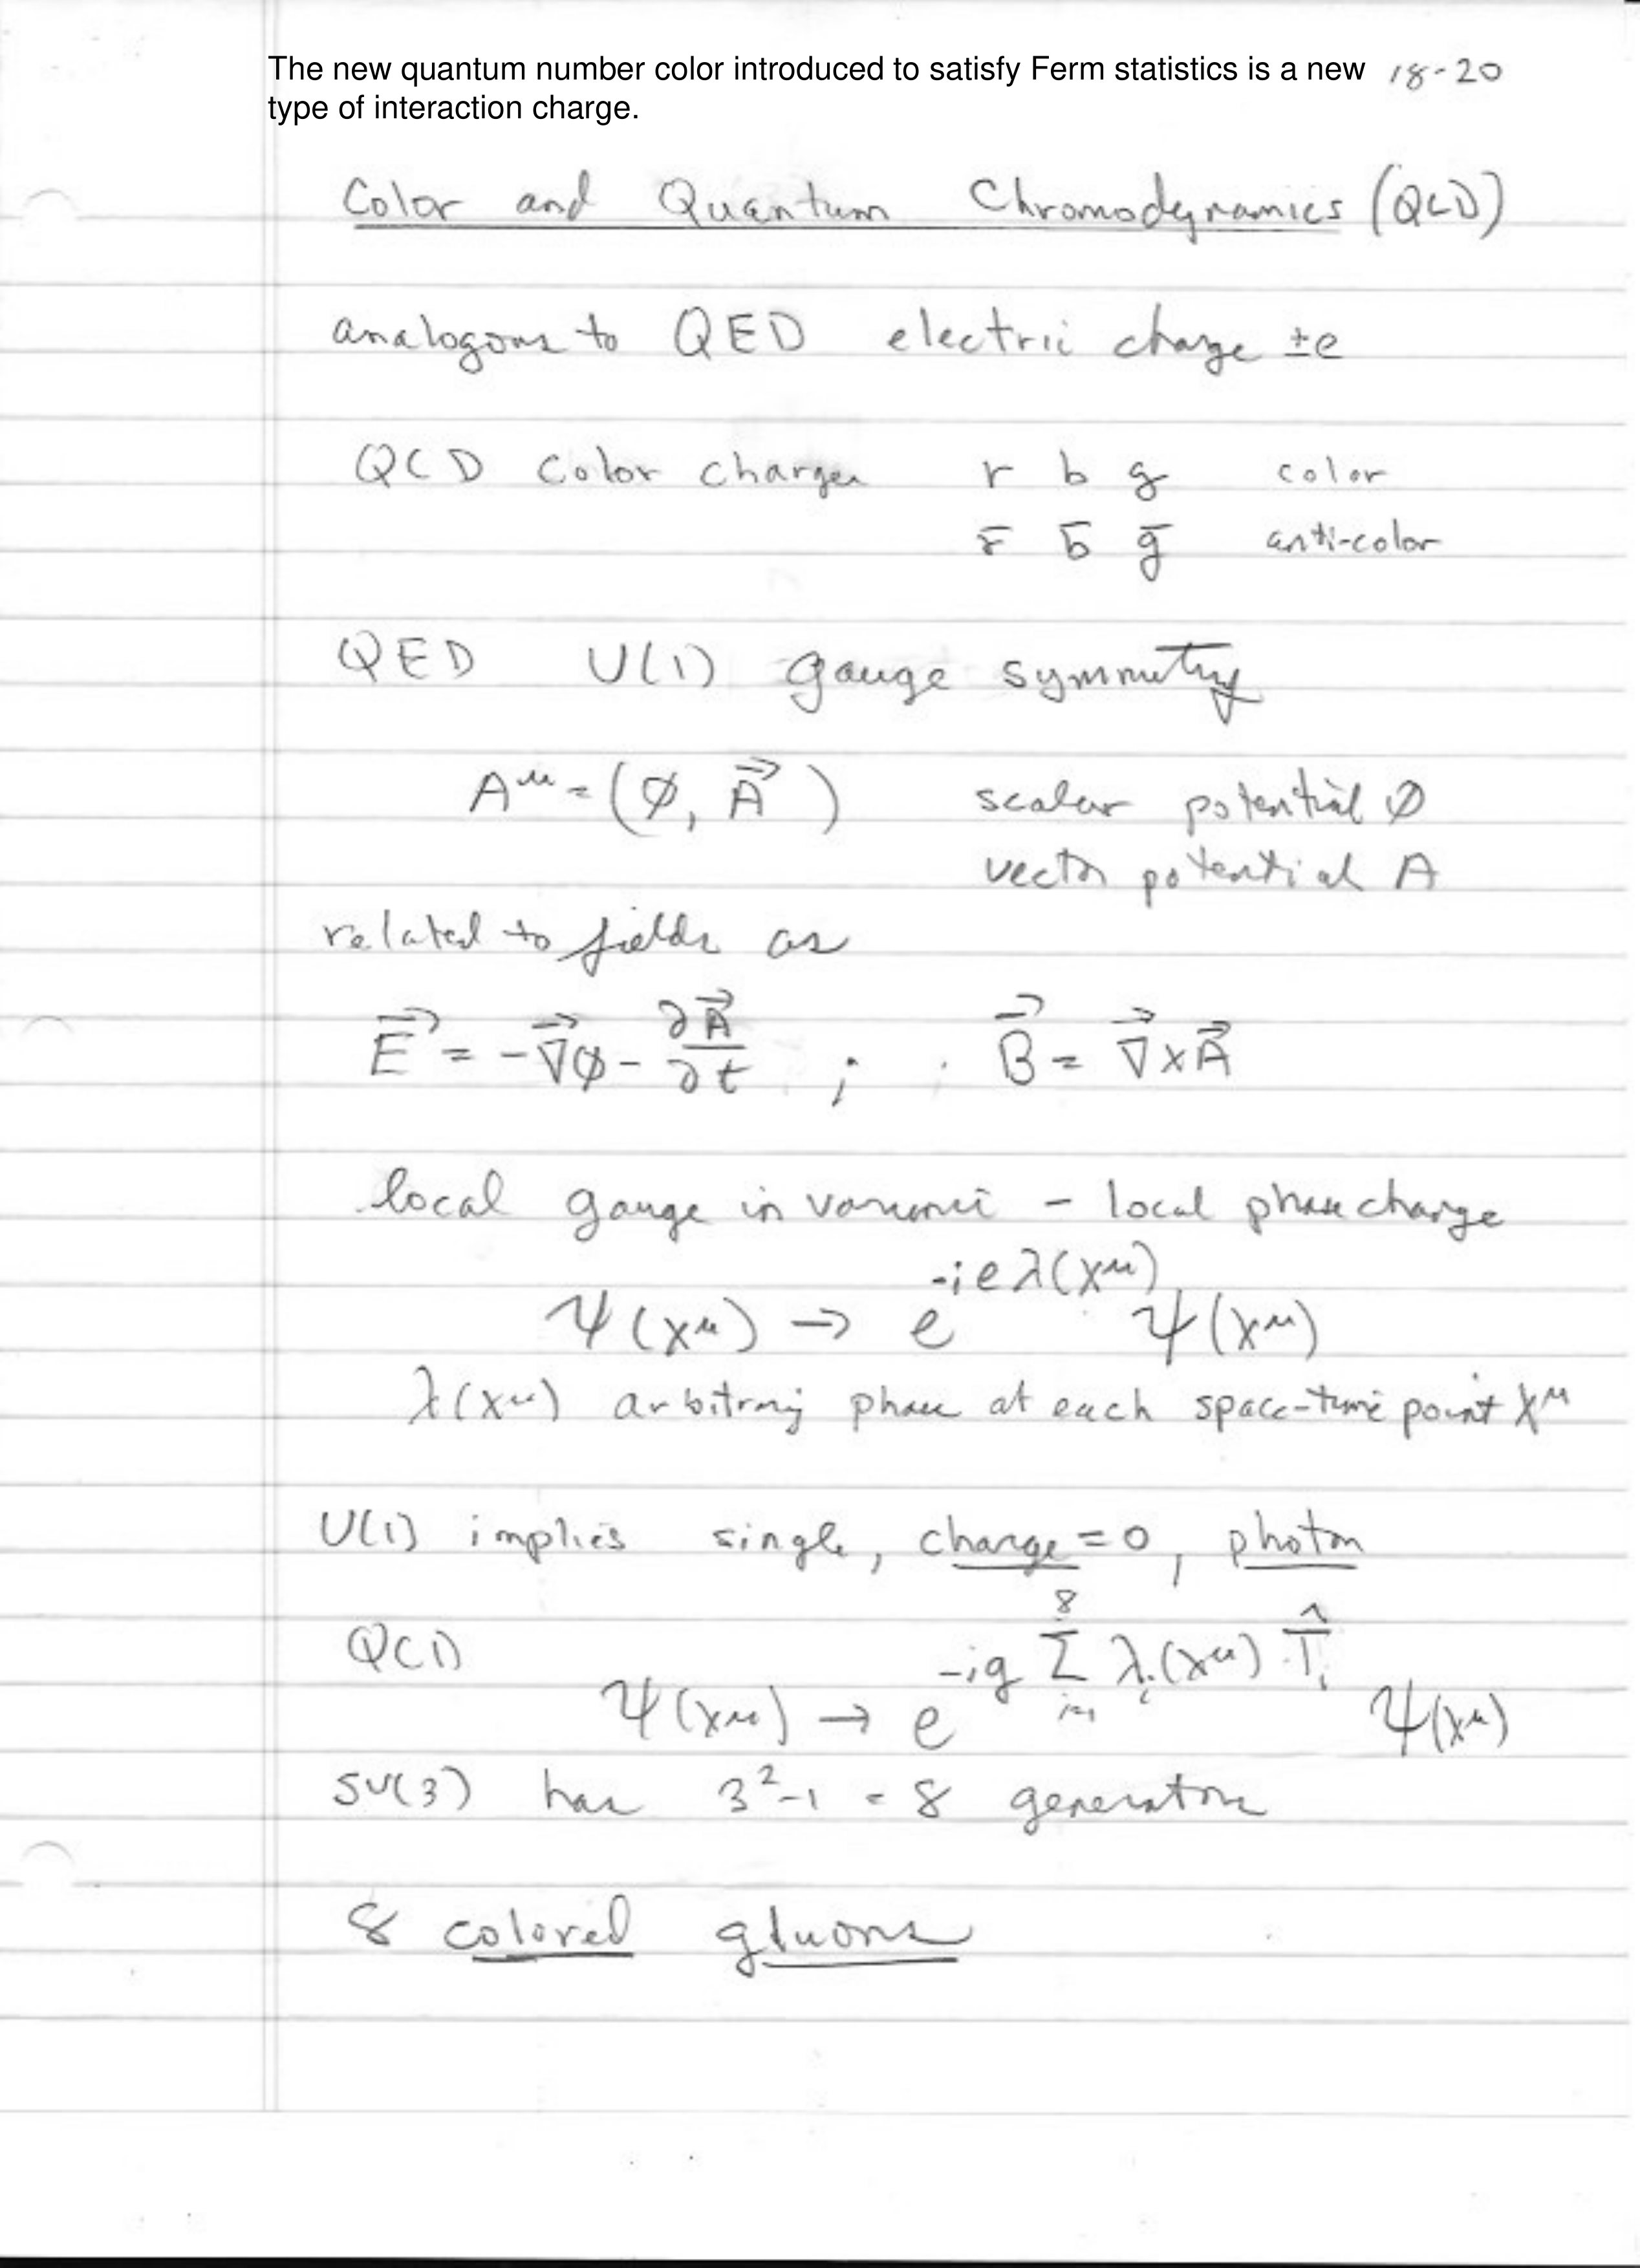 The new quantum number color introduced to satisfy Ferm statistics is a new 18-20
type of interaction charge.
Color and Quantum Chromodynamics (QCD)
analogous to QED electric charge ±e
QCD Color charges r b g color
r̄ b̄ ḡ anti-color
QED U(1) gauge symmetry
A^μ = (φ, A⃗) scalar potential φ
vector potential A
related to fields as
E⃗ = -∇⃗φ - ∂A⃗/∂t ; B⃗ = ∇⃗ x A⃗
local gauge invariance - local phase change
ψ(x^μ) → e^{-ieλ(x^μ)} ψ(x^μ)
λ(x^μ) arbitrary phase at each space-time point x^μ
U(1) implies single, charge = 0, photon
QCD
ψ(x^μ) → e^{-ig Σ_{i=1}^{8} λ_i(x^μ) T̂_i} ψ(x^μ)
SU(3) has 3²-1 = 8 generators
8 colored gluons